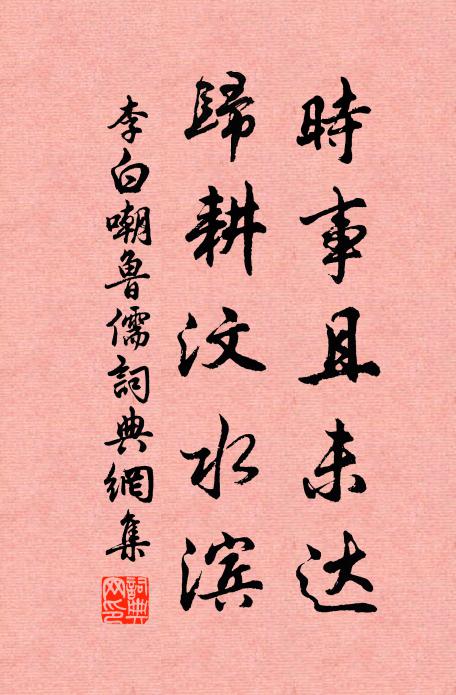 時事且未达
歸耕汶水滨
李白嘲魯儒詞典網集
詞典網印